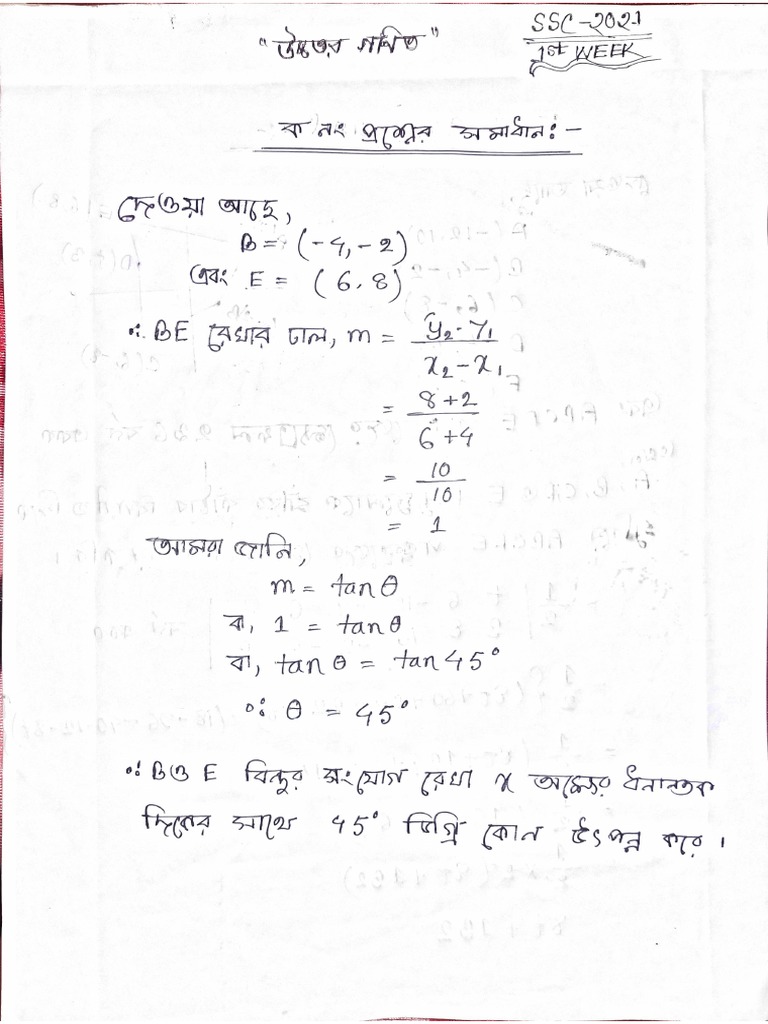 "উচ্চতর গণিত"
SSC-2021
1st WEEK
ক নং প্রশ্নের সমাধানঃ-
দেওয়া আছে,
B = (-4, -2)
এবং E = (6, 8)
∴ BE রেখার ঢাল, m = y₂-y₁ / x₂-x₁
= 8+2 / 6+4
= 10 / 10
= 1
আমরা জানি,
m = tanθ
বা, 1 = tanθ
বা, tanθ = tan45°
∴ θ = 45°
∴ B ও E বিন্দুর সংযোগ রেখা x অক্ষের ধনাত্তক
দিকের সাথে 45° ডিগ্রি কোন উৎপন্ন করে।